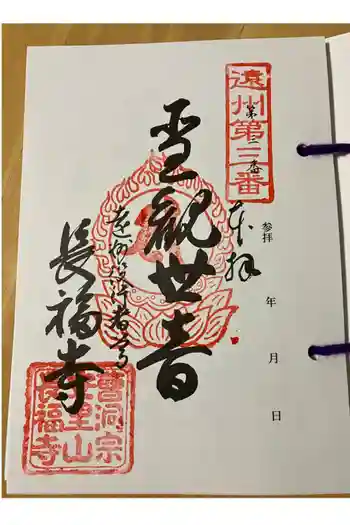 遠州第三番
第二番
奉拝
参拝
年 月 日
聖観世音
長福寺
曹洞宗
山
長福寺